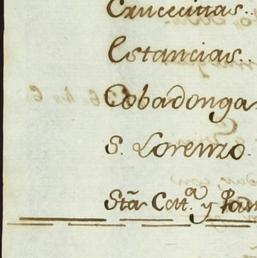 Crucecitas..
Estancias..
Cobadonga
S. Lorenzo.
Sta Cat.a y